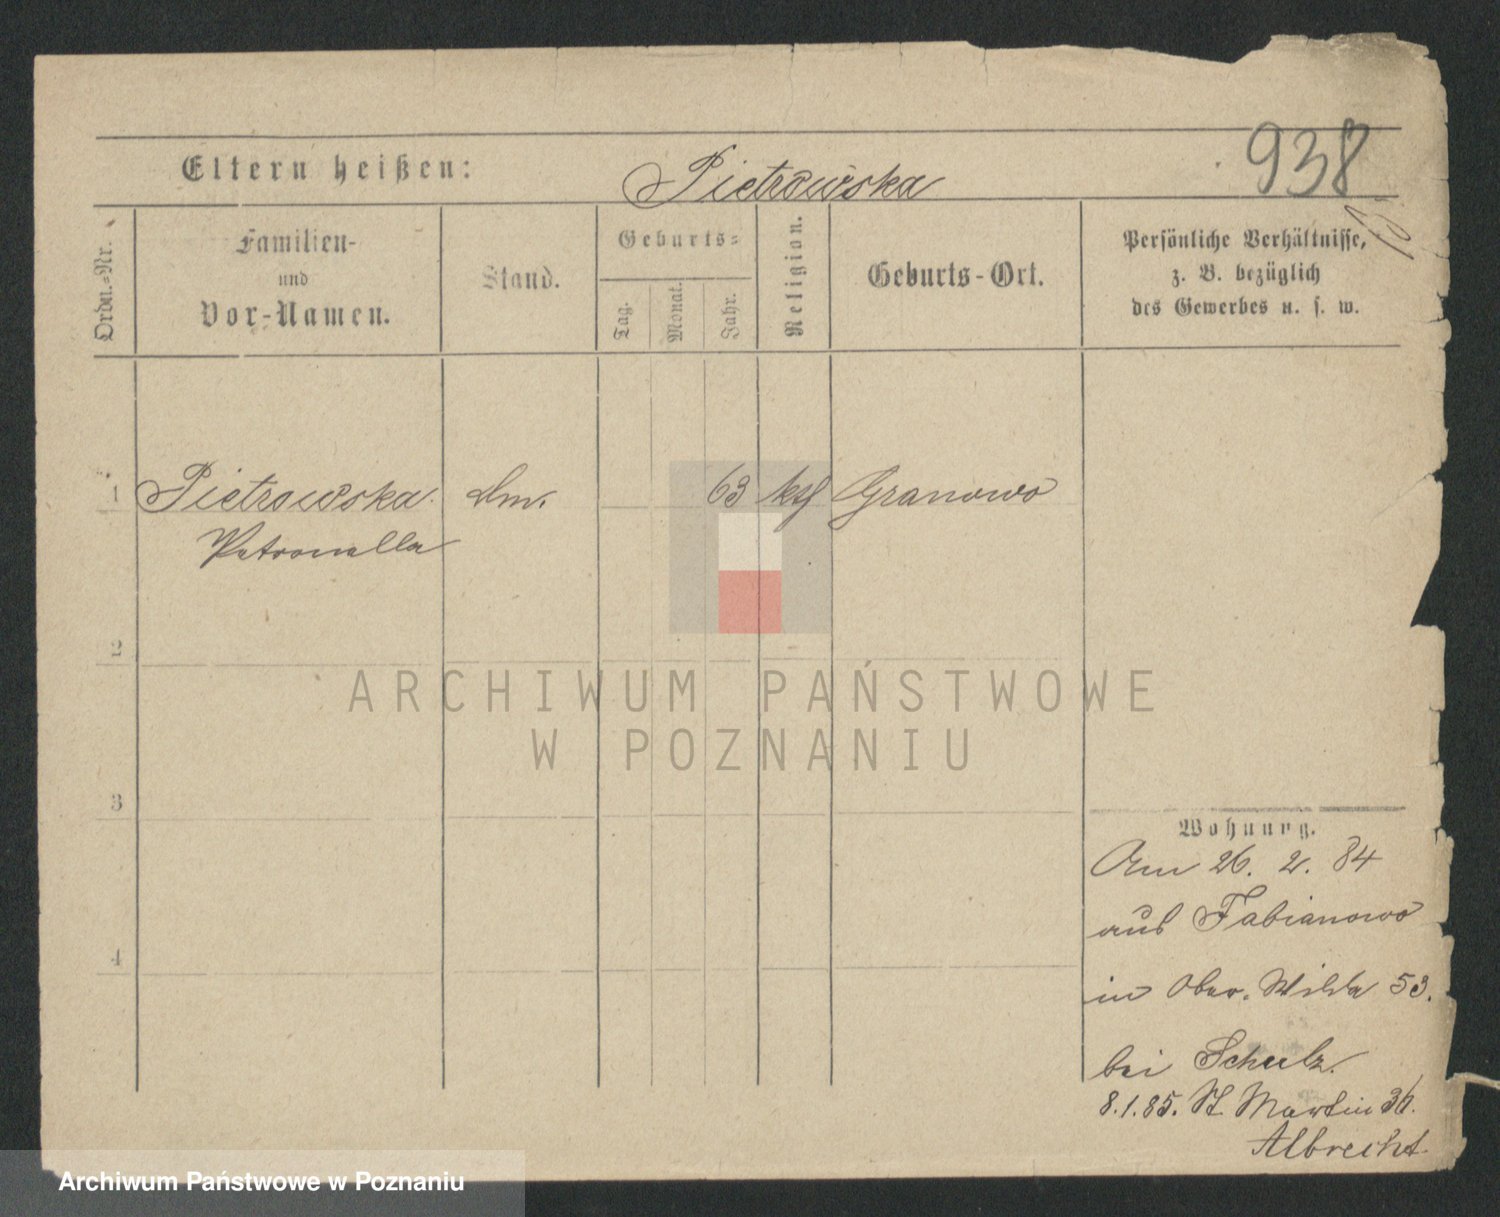 938
Eltern heißen: Pietrowska
Ordn.-Nr.
Familien-
und
Vor-Namen.
Stand.
Geburts-
Tag.
Monat.
Jahr.
Religion.
Geburts-Ort.
Persönliche Verhältnisse,
z. B. bezüglich
des Gewerbes u. s. w.
1 Pietrowska Dm. 63 kth Granowo
Petronella
2
3
4
Wohnung.
Am 26. 2. 84
aus Fabianowo
in Ober-Wilda 53.
bei Schulz.
8.1.85. St. Martin 36.
Albrecht
ARCHIWUM PAŃSTWOWE
W POZNANIU
Archiwum Państwowe w Poznaniu